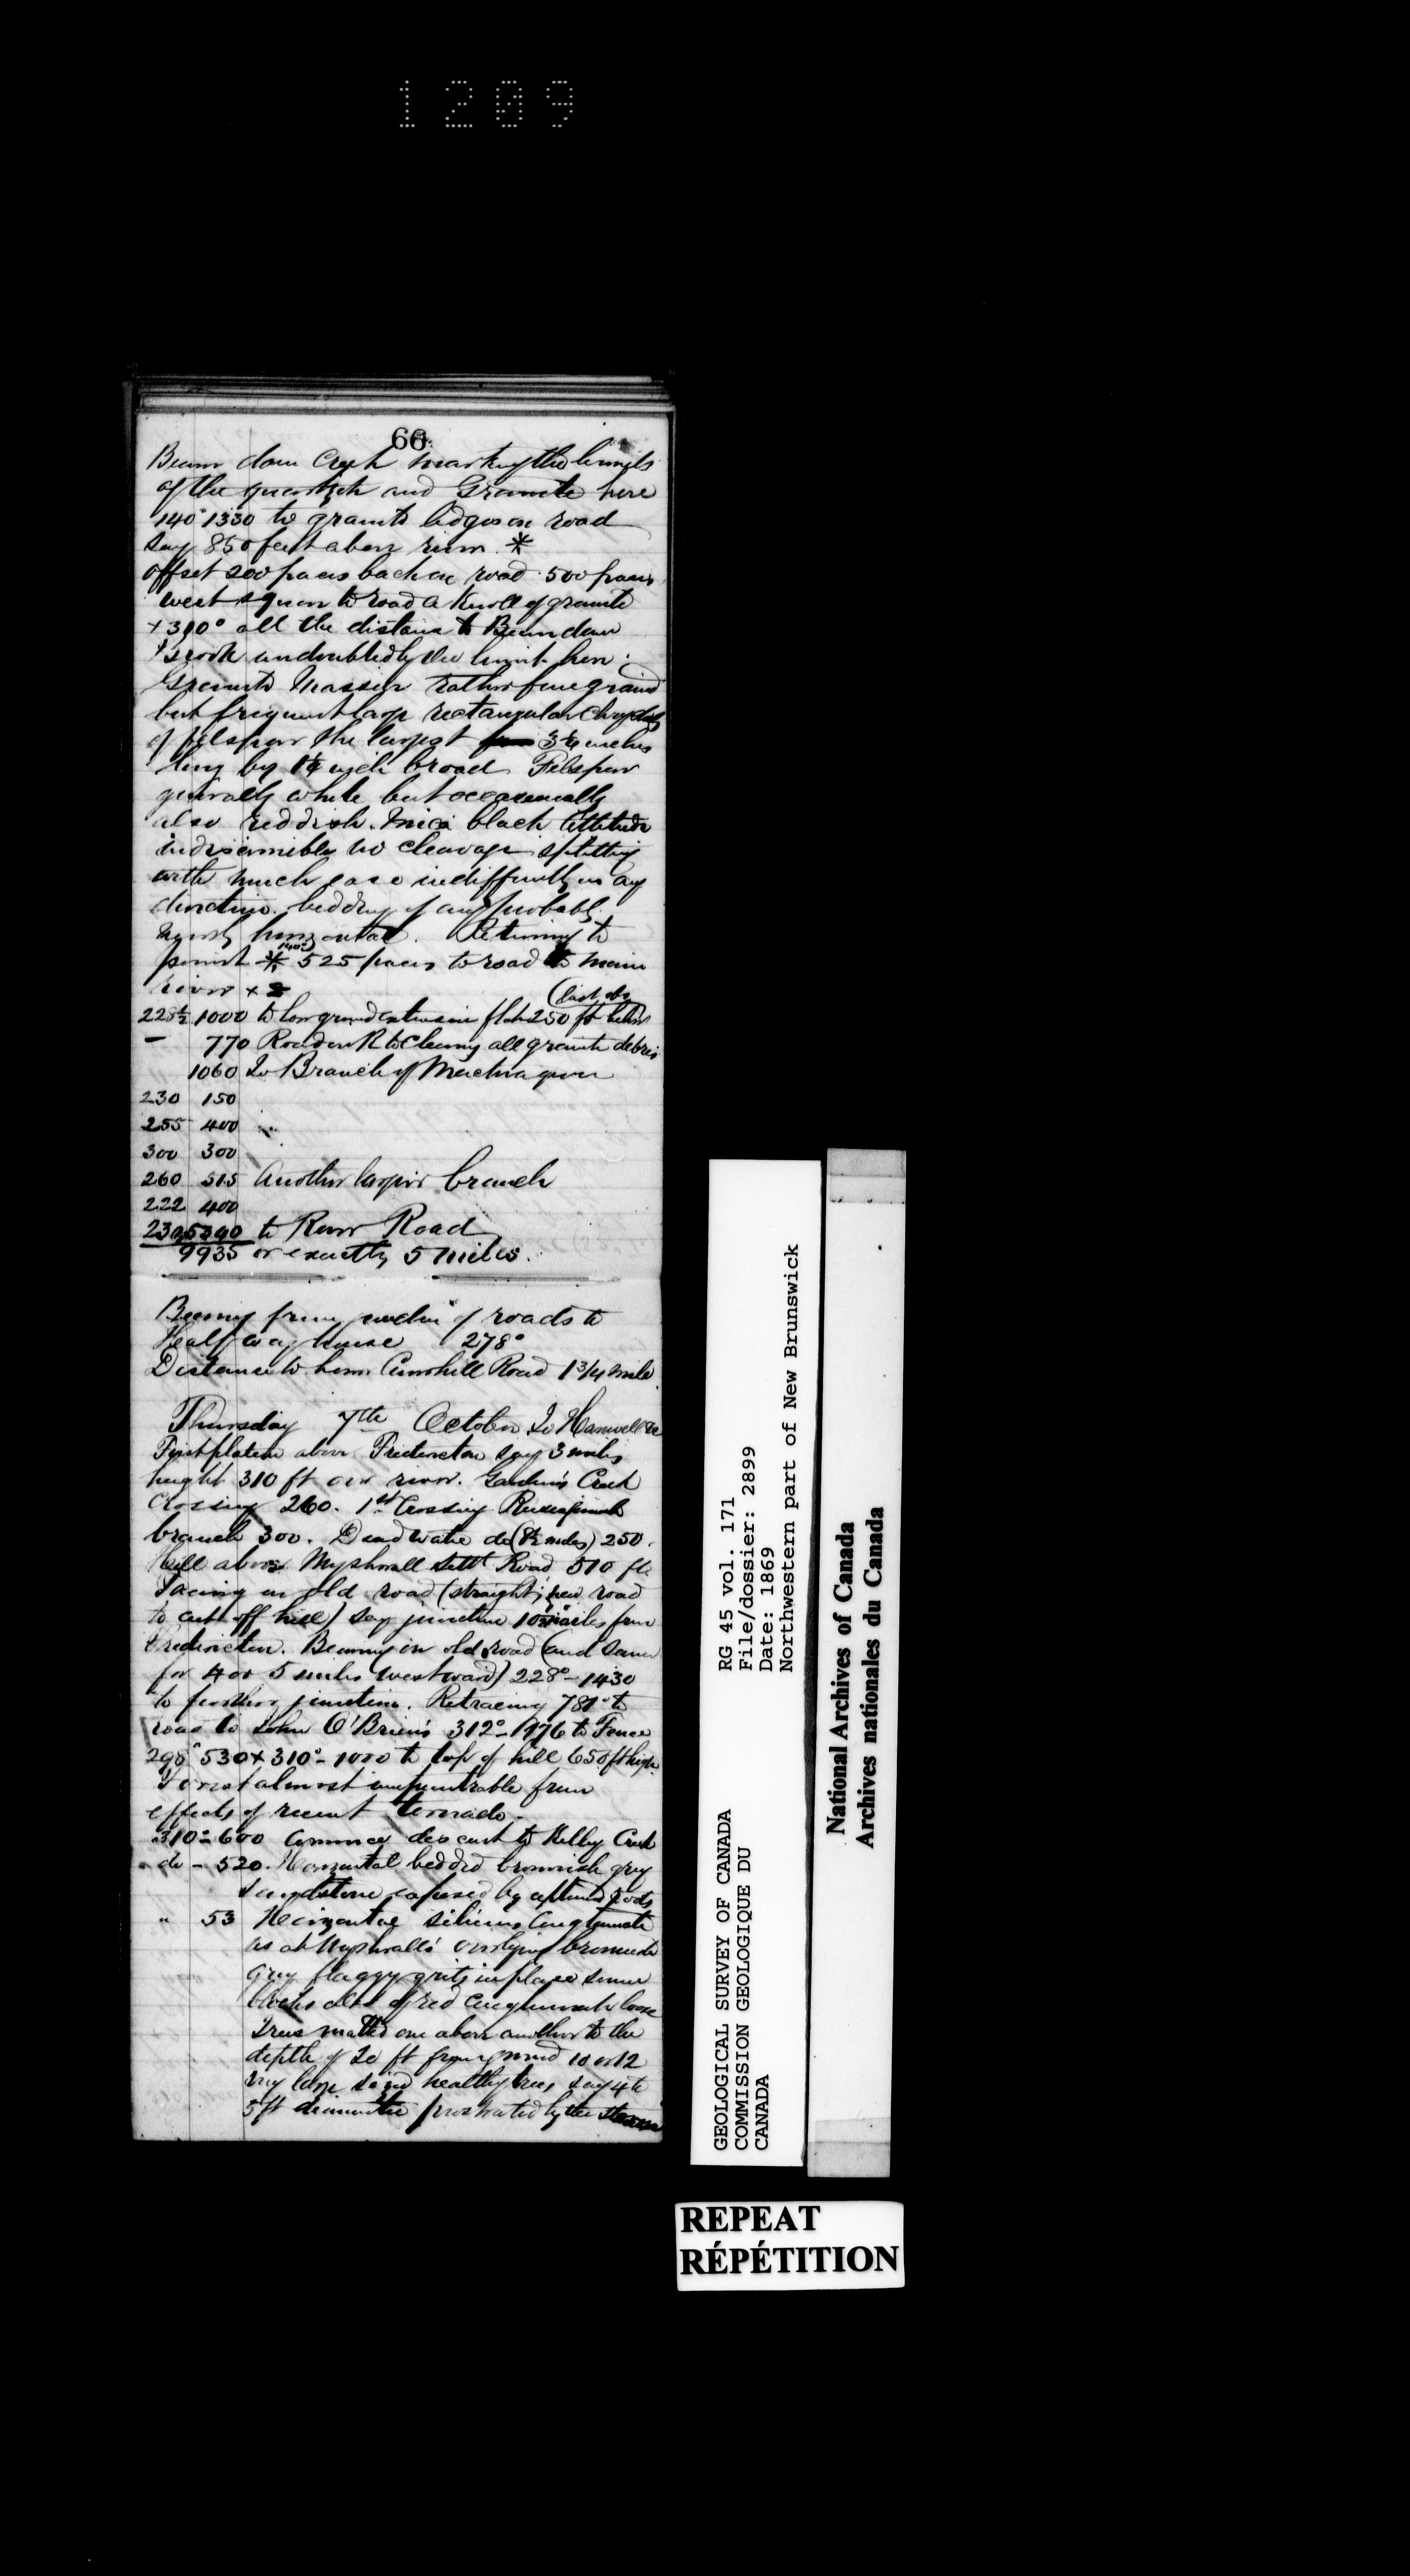 1209
66
Beaver dam Creek marking the limits
of the quartzite and Granite here
140° 1330 to granite ledges on road
say 850 feet above river. *
offset 200 paces back on road 500 paces
west square to road a knoll of granite
+ 310° all the distance to Beaverdam
Brook undoubtedly the limit here.
Granite Massive rather fine grained
but frequent large rectangular
of felspar the largest 3¼ inches
long by 1¼ inch broad Felspar
generally white but occasionally
also reddish. Mica black
indiscernible no cleavage splitting
with much ease indifferently in any
direction. bedding if any probably
nearly horizontal. Returning to
point * 525 paces to road to main
river +
228½ 1000 to low ground extensive flat 250 ft below (last obs)
— 770 Road on R to clearing all granite debris
1060 To Branch of
230 150
255 400
300 300
260 515 Another larger branch
222 400
5390 to River Road
9935 or exactly 5 miles.
Bearing from junction of roads to
Half way house 278°
Distance to Road 1 3/4 mile
Thursday 7th October To Hanwell &c
First plateau above Fredericton say 3 miles
height 310 ft over river. Garden's Creek
Crossing 260. 1st Crossing
branch 300. Dead water do (8½ miles) 250.
Hill above Myshrall Settt Road 510 ft.
Pacing on old road (straight; new road
to cut off hill) say junction 10½ miles from
Fredericton. Bearing on old road (and same
for 4 or 5 miles westward) 228° – 1430
to further junction. Retracing 781 to
road to John O'Brien's 312° – 1976 to Fence
298° 530 + 310° – 1000 to top of hill 650 ft high.
Forest almost impenetrable from
effects of recent tornado.
310° – 600 Commence descent to Kelley Creek
do – 520. Horizontal bedded brownish grey
sandstone exposed by upturned roots
" 53 Horizontal silicious Conglomerate
as at Myshrall's overlying brownish
grey flaggy grits in place some
blocks also of red conglomerate loose
Trees matted one above another to the
depth of 20 ft from ground 10 or 12
very large sized healthy trees say 4 to
5 ft diameter prostrated by the storm
GEOLOGICAL SURVEY OF CANADA
COMMISSION GEOLOGIQUE DU
CANADA
RG 45 vol. 171
File/dossier: 2899
Date: 1869
Northwestern part of New Brunswick
National Archives of Canada
Archives nationales du Canada
REPEAT
RÉPÉTITION